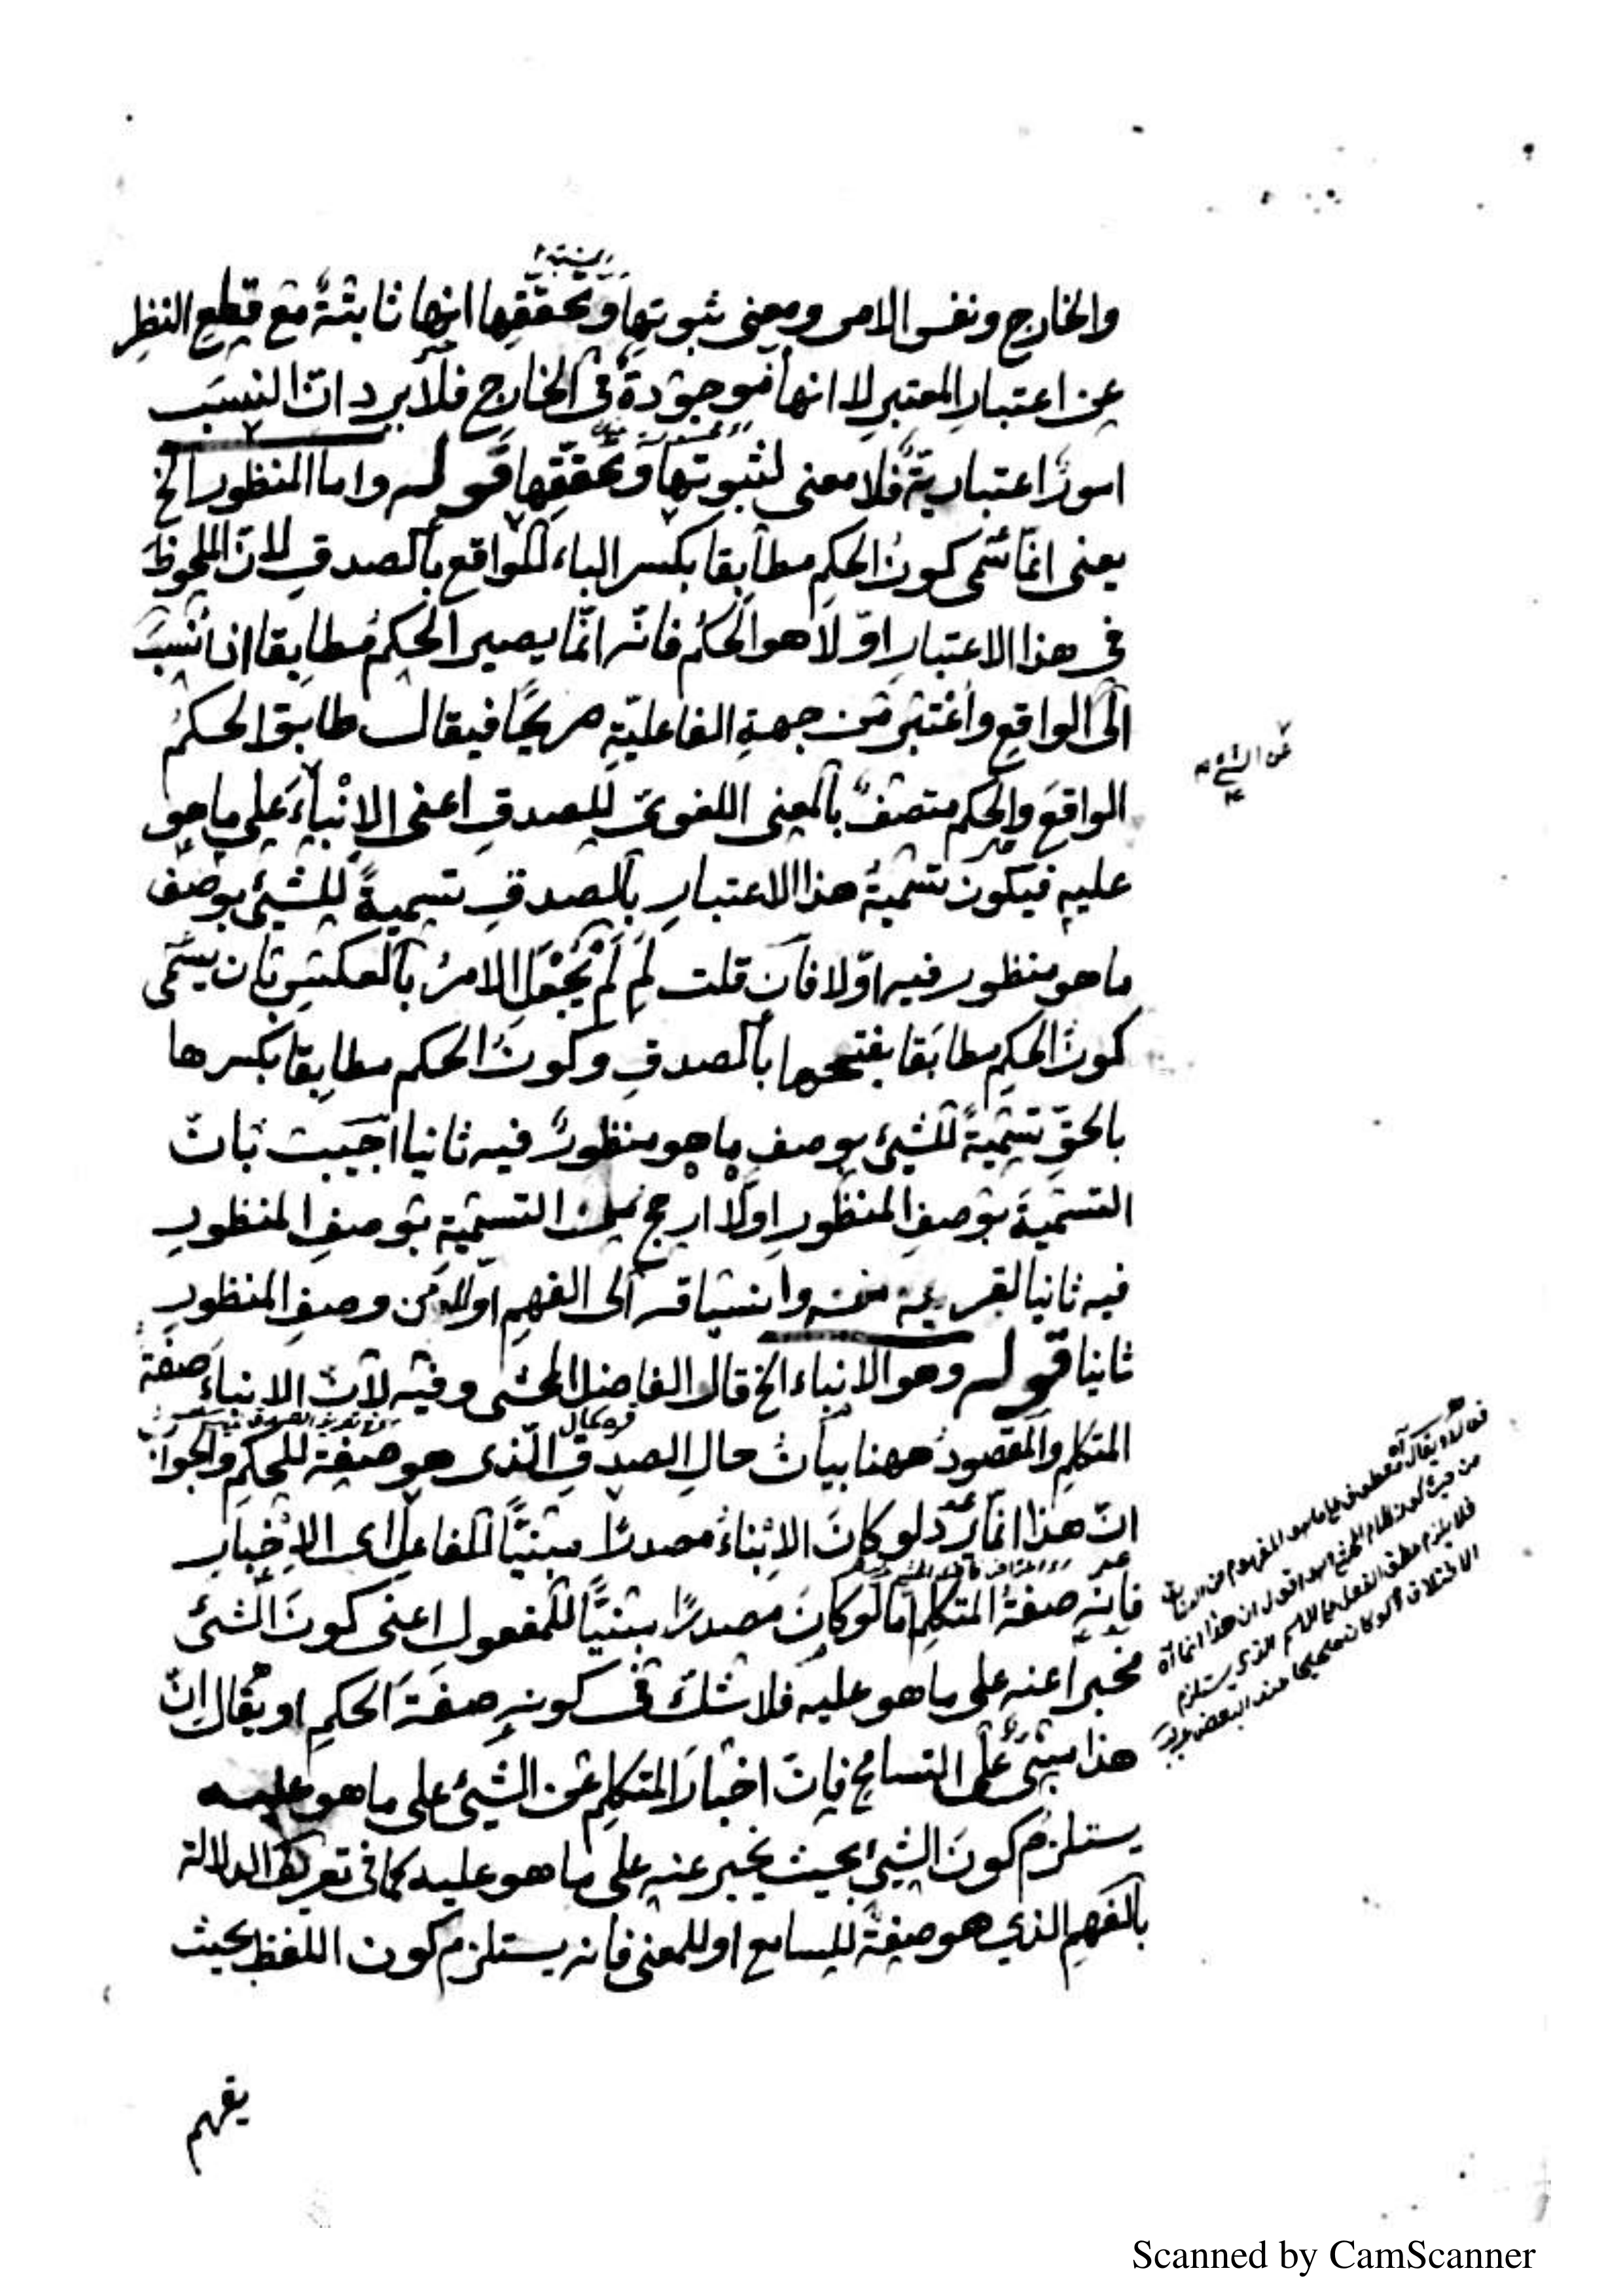 والخارج ونفس الامر ومعنى ثبوتها وتحققها انها ثابتة مع قطع النظر
عن اعتبار المعتبر لا انها موجودة في الخارج فلا يرد ان النسب
امور اعتبارية فلا معنى لثبوتها وتحققها قوله واما المنظور الخ
يعنى انما سمى كون الحكم مطابقا بكسر الباء للواقع بالصدق لان الملحوظ
في هذا الاعتبار اولا هو الحكم فانه انما يصير الحكم مطابقا اذا نسب
الى الواقع واعتبر من جهة الفاعلية صريحا فيقال طابق الحكم
الواقع والحكم متصف بالمعنى اللغوى للصدق اعنى الانباء على ما هو
عليه فيكون تسمية هذا الاعتبار بالصدق تسمية للشئ بوصف
ما هو منظور فيه اولا فان قلت لِمَ لَمْ يُجْعَلِ الامر بالعكس بان يسمى
كون الحكم مطابقا بفتحها بالصدق وكون الحكم مطابقا بكسرها
بالحق تسمية للشئ بوصف ما هو منظور فيه ثانيا اجيبت بان
التسمية بوصف المنظور اولا ارجح من التسمية بوصف المنظور
فيه ثانيا لقربه منه وانسياقه الى الفهم اولا من وصف المنظور
ثانيا قوله وهو الانباء الخ قال الفاضل المحشى وفيه لان الانباء صفة
المتكلم والمقصود ههنا بيان حال الصدق الذى هو صفة للحكم والجواب
ان هذا انما يرد لو كان الانباء مصدرا مبنيا للفاعل اى الاخبار
فانه صفة المتكلم اما لو كان مصدرا مبنيا للمفعول اعنى كون الشئ
مخبرا عنه على ما هو عليه فلا شك في كونه صفة الحكم او يقال ان
هذا مبنى على التسامح فان اخبار المتكلم عن الشئ على ما هو عليه
يستلزم كون الشئ بحيث يخبر عنه على ما هو عليه كما في تعريف الدلالة
بالفهم الذي هو صفة للسامع او للمعنى فانه يستلزم كون اللفظ بحيث
يفهم
قوله او يقال آه معطوف على ما هو المفهوم من السابق
فلا يلزم عطف الفعل على الاسم الذى يستلزم
Scanned by CamScanner